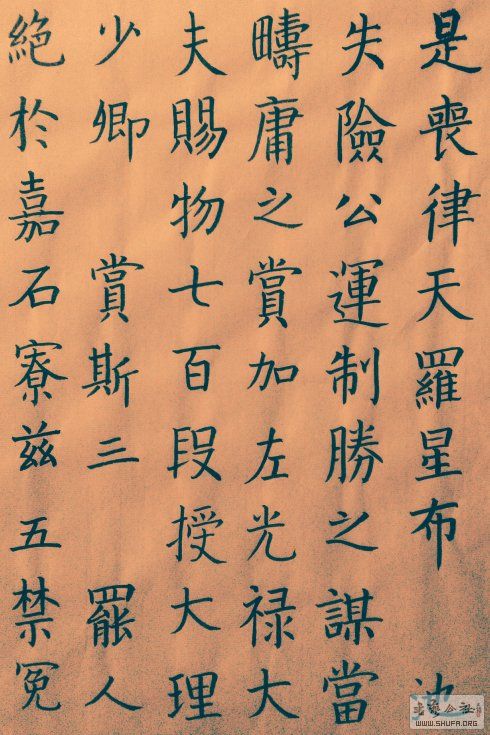 是喪律天羅星布
失險公運制勝之謀當
疇庸之賞加左光禄大
夫賜物七百段授大理
少卿 賞斯三 罷人
絕於嘉石寮兹五禁冤
WWW.SHUFA.ORG